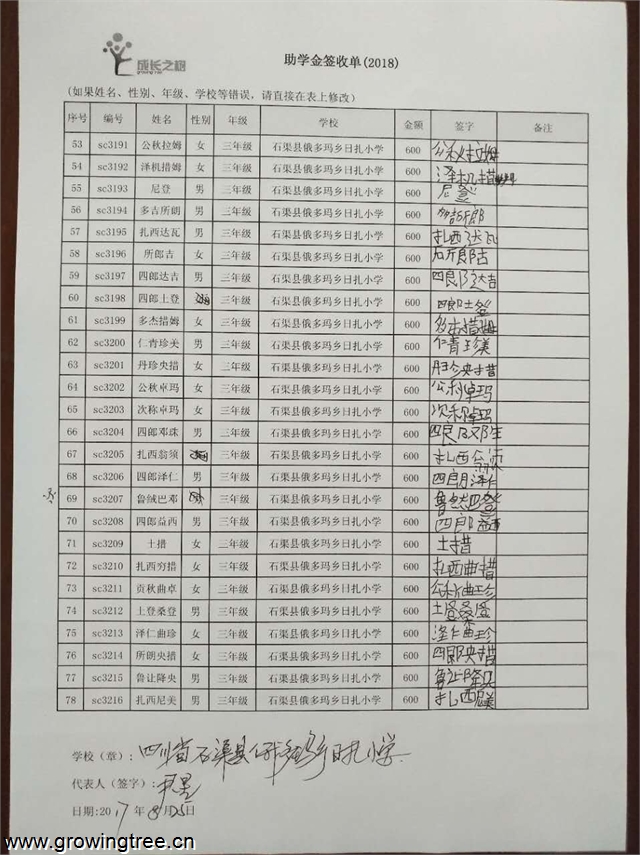 成长之树
growing tree
助学金签收单(2018)
(如果姓名、性别、年级、学校等错误,请直接在表上修改)
序号 编号 姓名 性别 年级 学校 金额 签字 备注
53 sc3191 公秋拉姆 女 三年级 石渠县俄多玛乡日扎小学 600 公秋拉姆
54 sc3192 泽机措姆 女 三年级 石渠县俄多玛乡日扎小学 600 泽机措
55 sc3193 尼登 男 三年级 石渠县俄多玛乡日扎小学 600 尼登
56 sc3194 多吉所朗 男 三年级 石渠县俄多玛乡日扎小学 600
57 sc3195 扎西达瓦 男 三年级 石渠县俄多玛乡日扎小学 600 扎西达瓦
58 sc3196 所郎吉 女 三年级 石渠县俄多玛乡日扎小学 600 所郎吉
59 sc3197 四郎达吉 男 三年级 石渠县俄多玛乡日扎小学 600 四郎达吉
60 sc3198 四郎土登 三年级 石渠县俄多玛乡日扎小学 600 四郎土登
61 sc3199 多杰措姆 女 三年级 石渠县俄多玛乡日扎小学 600 多杰措姆
62 sc3200 仁青珍美 男 三年级 石渠县俄多玛乡日扎小学 600 仁青珍美
63 sc3201 丹珍央措 女 三年级 石渠县俄多玛乡日扎小学 600 丹珍央措
64 sc3202 公秋卓玛 女 三年级 石渠县俄多玛乡日扎小学 600 公秋卓玛
65 sc3203 次称卓玛 女 三年级 石渠县俄多玛乡日扎小学 600 次称卓玛
66 sc3204 四郎邓珠 男 三年级 石渠县俄多玛乡日扎小学 600
67 sc3205 扎西翁须 三年级 石渠县俄多玛乡日扎小学 600 扎西翁须
68 sc3206 四郎泽仁 男 三年级 石渠县俄多玛乡日扎小学 600 四郎泽仁
69 sc3207 鲁绒巴邓 三年级 石渠县俄多玛乡日扎小学 600
70 sc3208 四郎益西 男 三年级 石渠县俄多玛乡日扎小学 600 四郎益西
71 sc3209 土措 女 三年级 石渠县俄多玛乡日扎小学 600 土措
72 sc3210 扎西穷措 女 三年级 石渠县俄多玛乡日扎小学 600 扎西曲措
73 sc3211 贡秋曲卓 女 三年级 石渠县俄多玛乡日扎小学 600 公秋曲珍
74 sc3212 土登桑登 男 三年级 石渠县俄多玛乡日扎小学 600 土登桑登
75 sc3213 泽仁曲珍 女 三年级 石渠县俄多玛乡日扎小学 600 泽仁曲珍
76 sc3214 所朗央措 女 三年级 石渠县俄多玛乡日扎小学 600 四郎央措
77 sc3215 鲁让降央 男 三年级 石渠县俄多玛乡日扎小学 600
78 sc3216 扎西尼美 男 三年级 石渠县俄多玛乡日扎小学 600 扎西尼美
学校(章): 四川省石渠县俄多玛乡日扎小学
代表人(签字):
日期:2017年8月25日
www.growingtree.cn